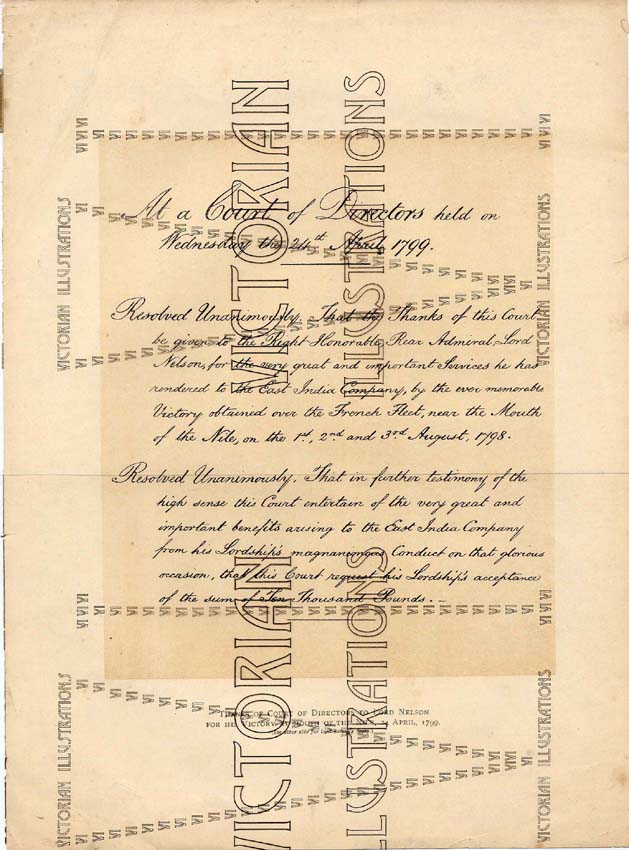 At a Court of Directors held on
Wednesday the 24th April, 1799.
Resolved Unanimously, That the Thanks of this Court
be given to the Right Honorable Rear Admiral Lord
Nelson, for the very great and important Services he has
rendered to the East India Company, by the ever memorable
Victory obtained over the French Fleet, near the Mouth
of the Nile, on the 1st, 2nd and 3rd August, 1798.
Resolved Unanimously, That in further testimony of the
high sense this Court entertain of the very great and
important benefits arising to the East India Company
from his Lordship's magnanimous Conduct on that glorious
occasion, that this Court request his Lordship's acceptance
of the sum of Ten Thousand Pounds. —
THANKS OF COURT OF DIRECTORS TO LORD NELSON
FOR HIS VICTORY AT MOUTH OF THE NILE, 24 APRIL, 1799.
(See other side for Lord Nelson's
VICTORIAN ILLUSTRATIONS
VICTORIAN ILLUSTRATIONS
VICTORIAN ILLUSTRATIONS
VICTORIAN ILLUSTRATIONS
VICTORIAN
ILLUSTRATIONS
VICTORIAN
ILLUSTRATIONS